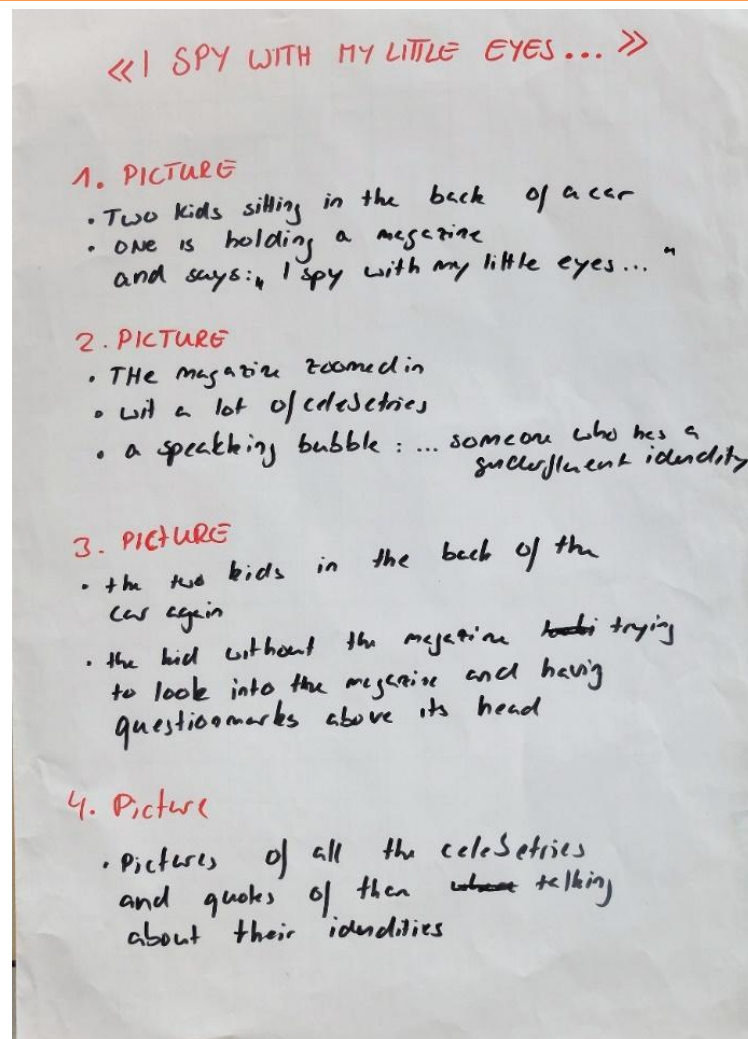 «I SPY WITH MY LITTLE EYES... »
1. PICTURE
• Two kids sitting in the back of a car
• ONE is holding a magazine
and says: „I spy with my little eyes... "
2. PICTURE
• THe magazine zoomed in
• wit a lot of celebetries
• a speakking bubble : ... someone who has a
identity
3. PICTURE
• the two kids in the back of the
car again
• the kid without the magazine trying
to look into the magazine and havig
questionmarks above its head
4. Picture
• Pictures of all the celebetries
and quotes of then talking
about their idendities